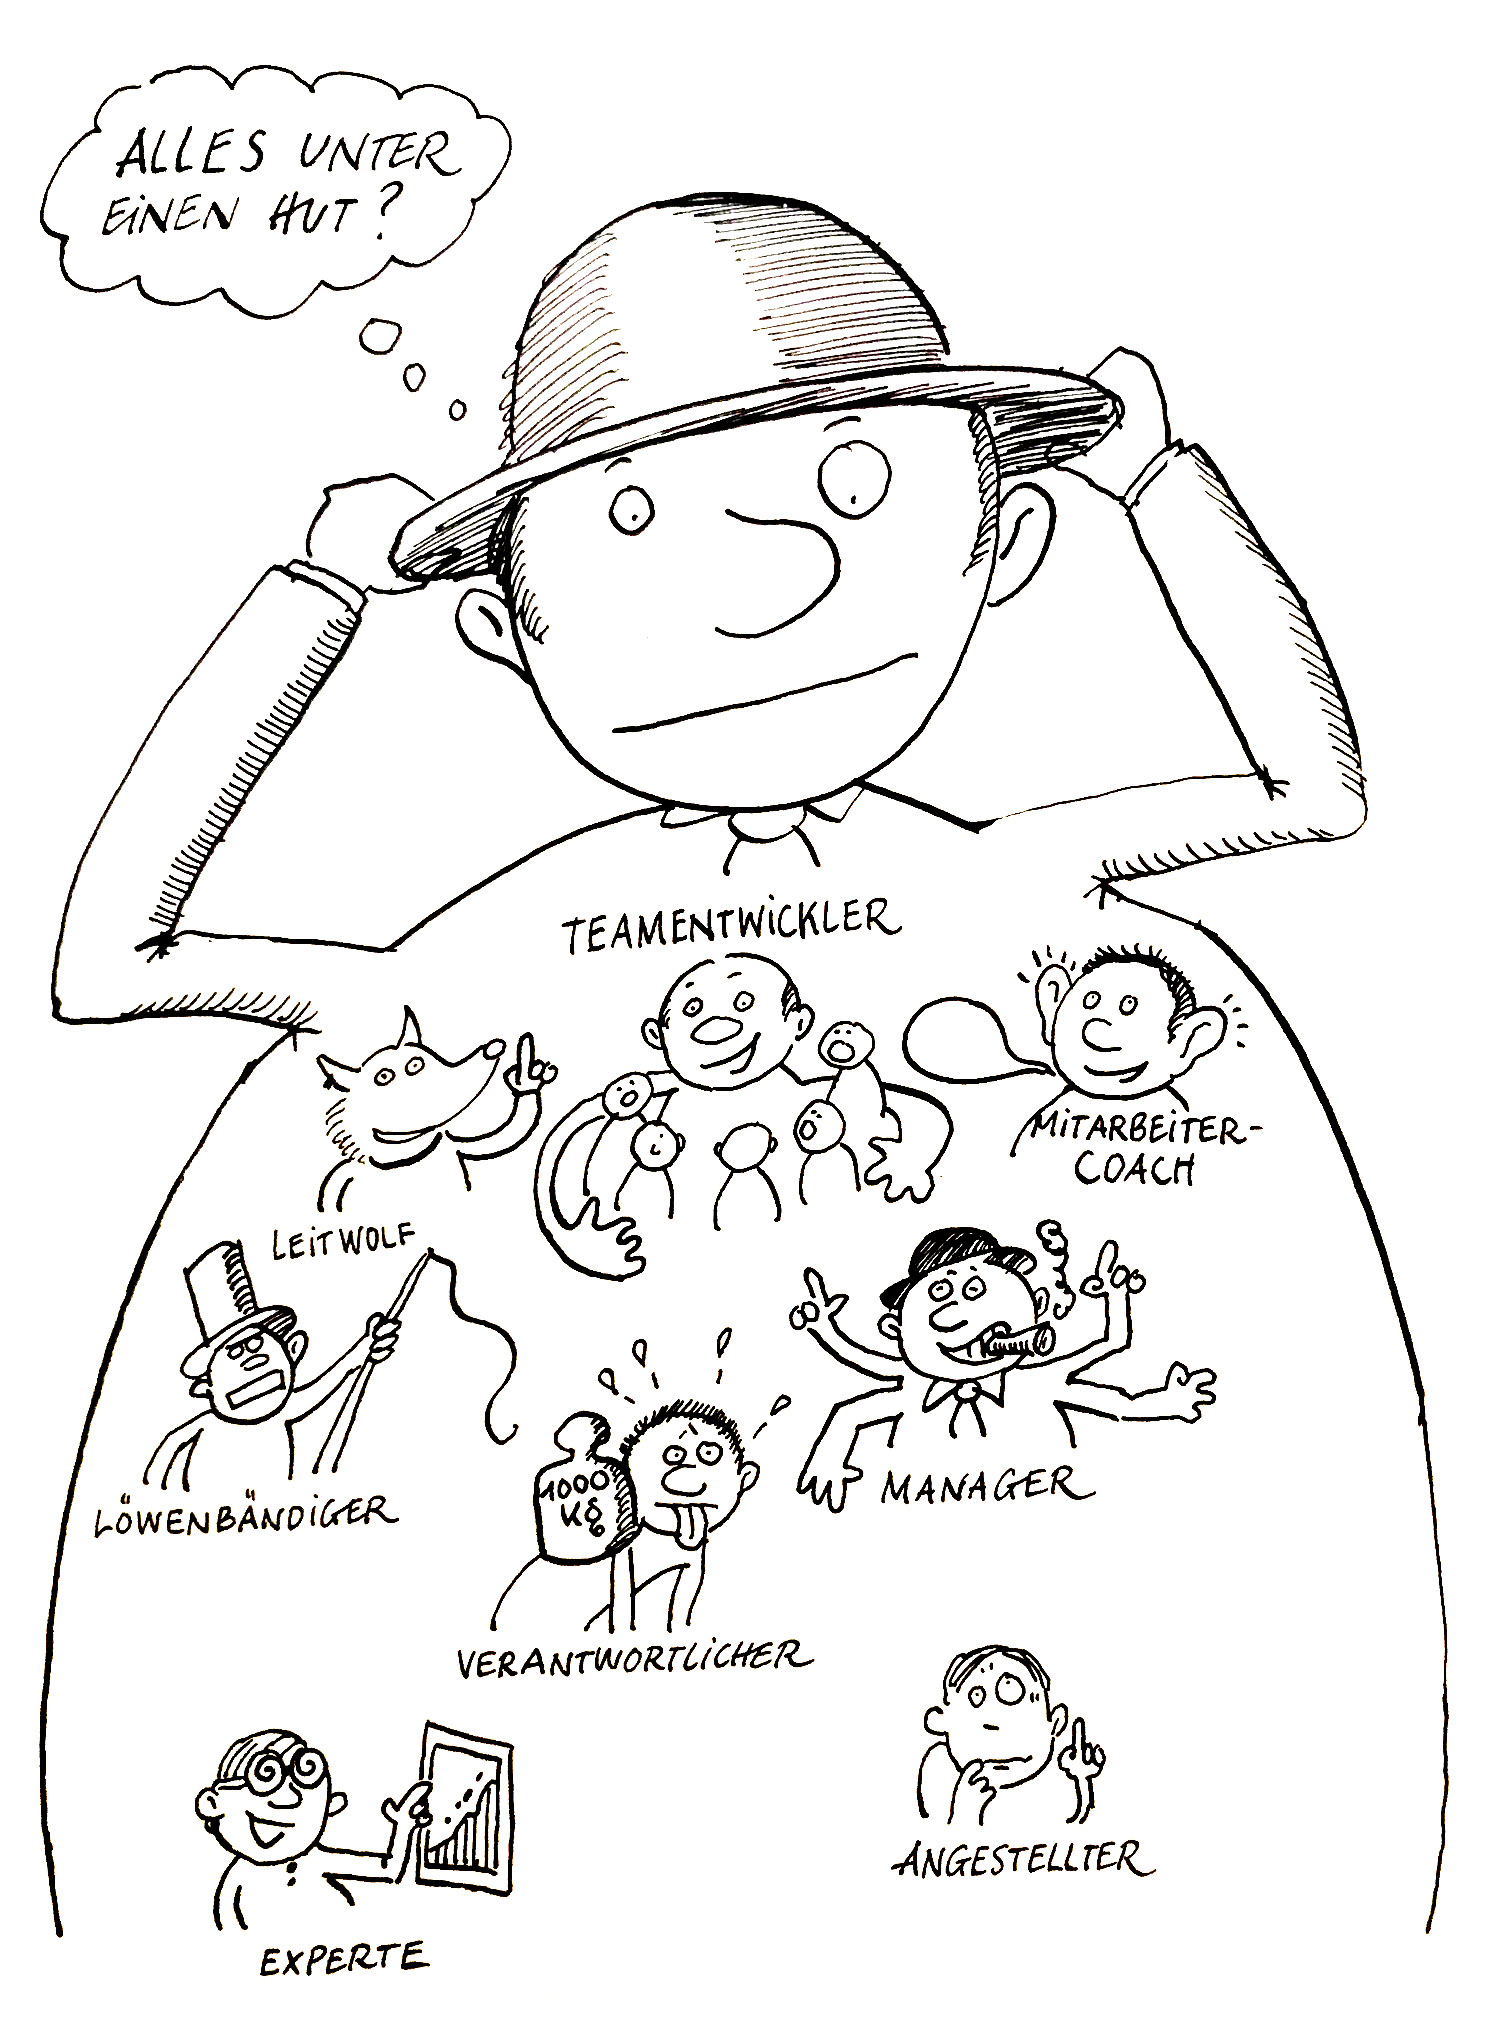 ALLES UNTER
EINEN HUT?
TEAMENTWICKLER
MITARBEITER-
COACH
LEITWOLF
LÖWENBÄNDIGER
1000
KG
MANAGER
VERANTWORTLICHER
ANGESTELLTER
EXPERTE